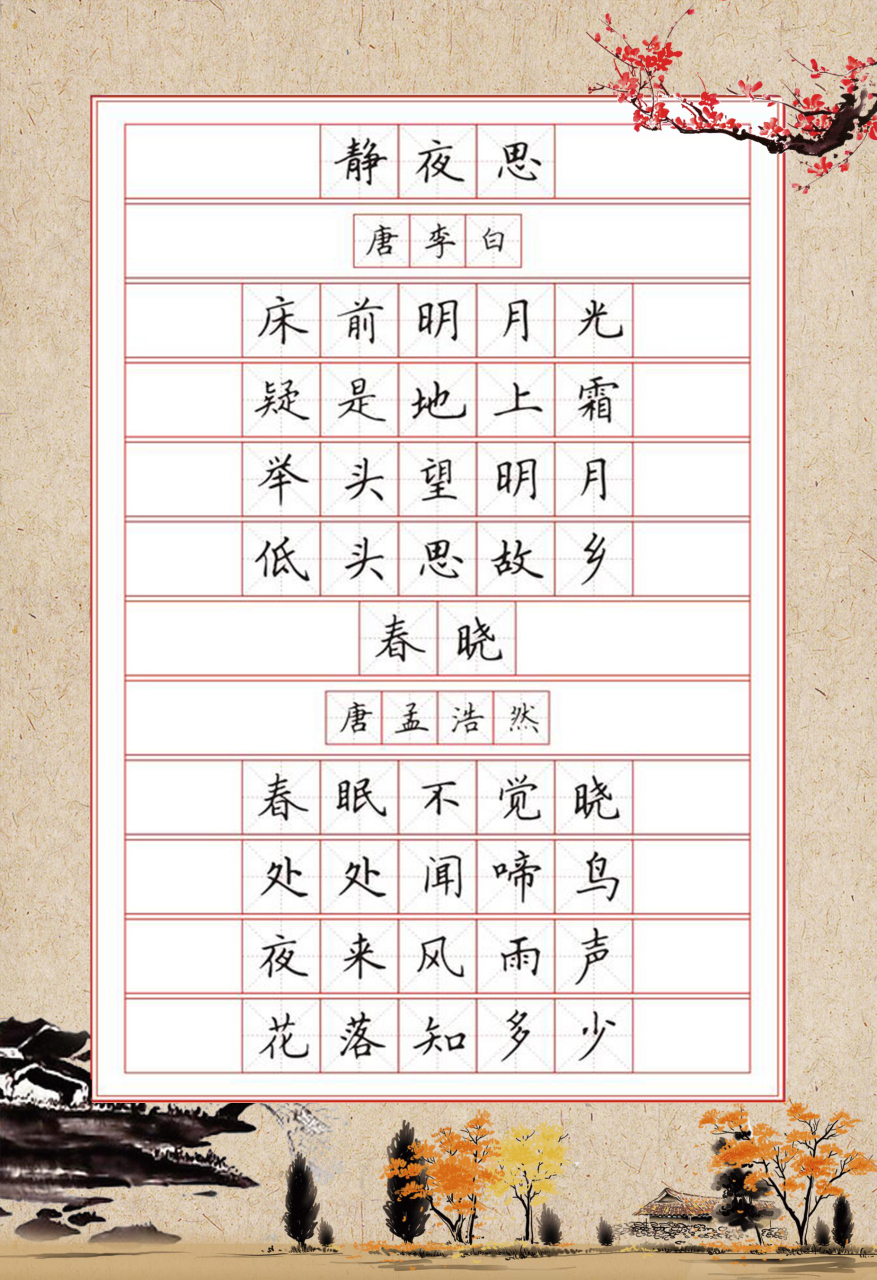 静夜思
唐李白
床前明月光
疑是地上霜
举头望明月
低头思故乡
春晓
唐孟浩然
春眠不觉晓
处处闻啼鸟
夜来风雨声
花落知多少